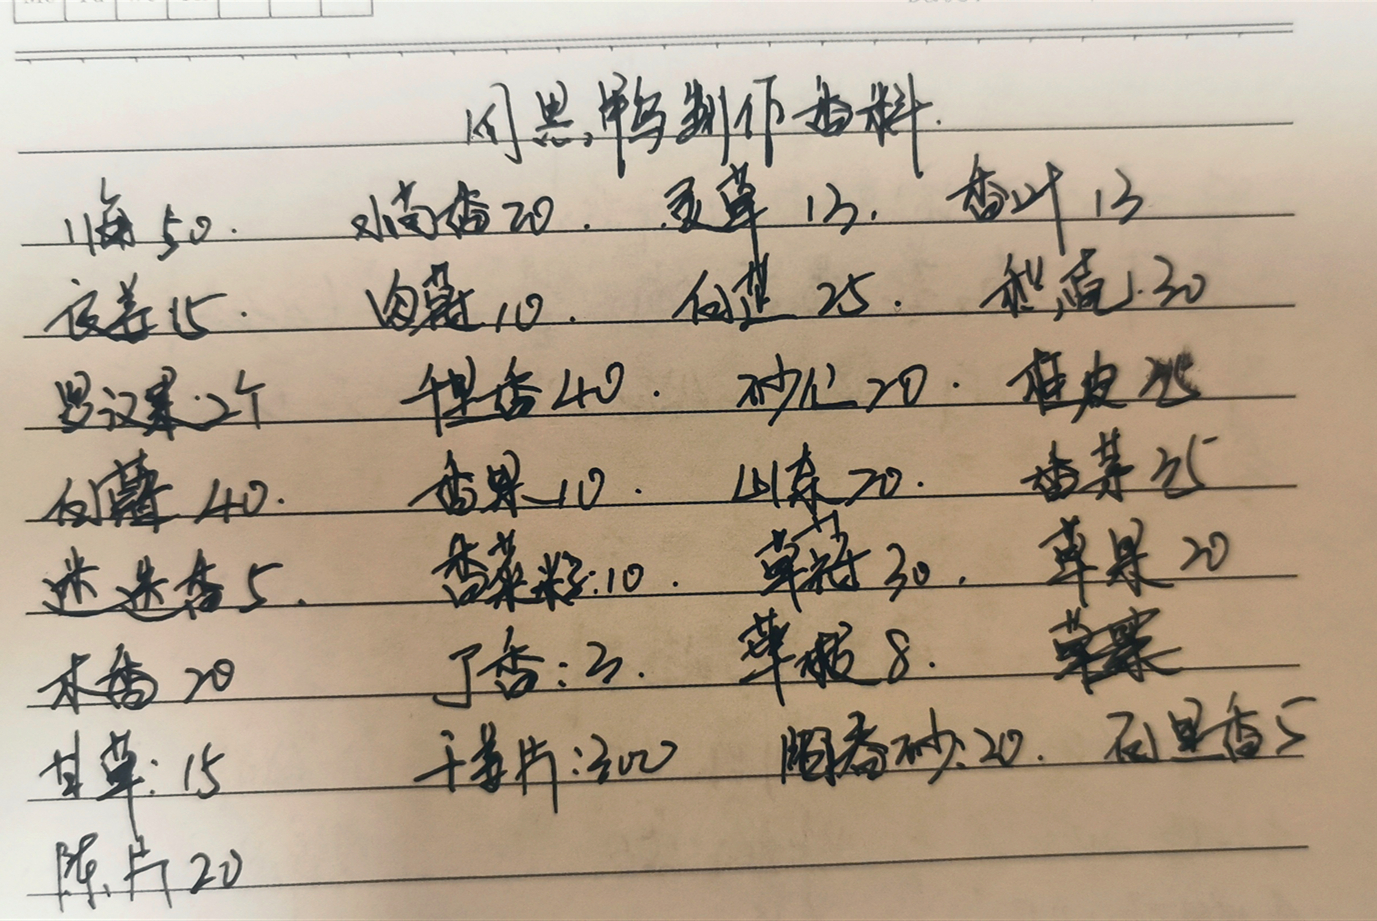 周黑鸭制作香料.
八角 50. 小茴香 20. 灵草 13. 香叶 13
良姜 15. 肉蔻 10. 白芷 25. 30
罗汉果:2个 千里香 40. 砂仁 20. 桂皮 25
白蔻 40. 香果 10. 山奈 20. 香茅 25
迷迭香 5. 香菜籽:10. 草蔻 30. 草果 20
木香 20 丁香:3. 荜拨 8.
甘草:15 干姜片:300 阳春砂:20. 百里香 5
陈片 20